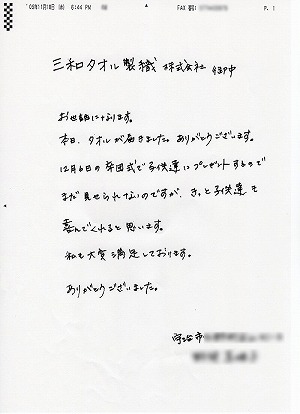 '09年11月18日(水) 6:44 PM FAX 番: P. 1
三和タオル製織株式会社 御中
お世話になります。
本日、タオルが届きました。ありがとうございます。
12月6日の卒団式で子供達にプレゼントするので
まだ見せられないのですが、きっと子供達も
喜んでくれると思います。
私も大変満足しております。
ありがとうございました。
守谷市